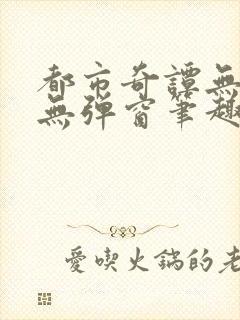 都市奇譚無
無彈窗筆趣
愛喫火鍋的老